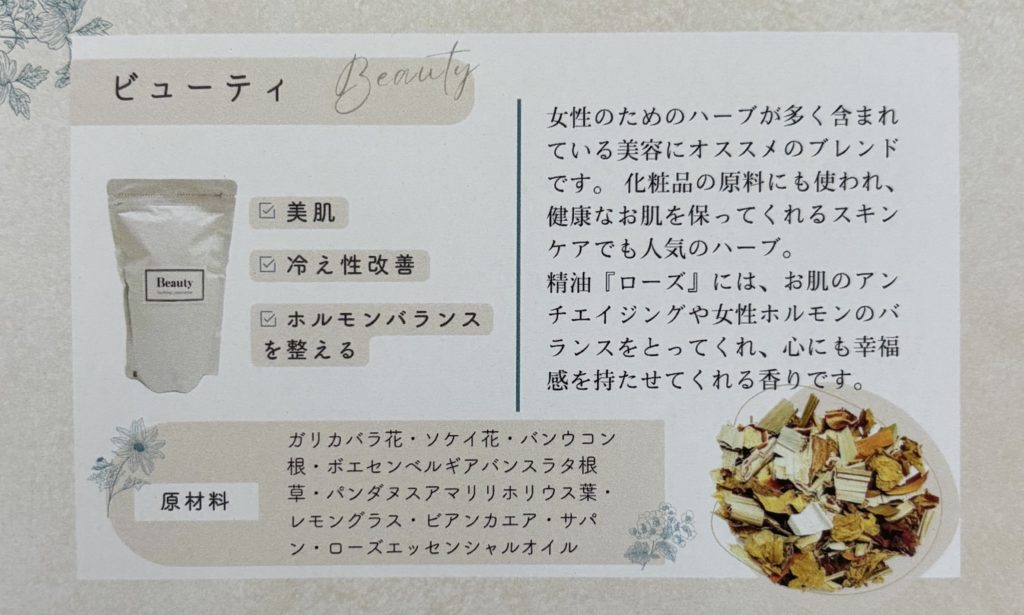 ビューティ
Beauty
Beauty
美肌
冷え性改善
ホルモンバランス
を整える
女性のためのハーブが多く含まれ
ている美容にオススメのブレンド
です。 化粧品の原料にも使われ、
健康なお肌を保ってくれるスキン
ケアでも人気のハーブ。
精油『ローズ』には、お肌のアン
チエイジングや女性ホルモンのバ
ランスをとってくれ、心にも幸福
感を持たせてくれる香りです。
原材料
ガリカバラ花・ソケイ花・バンウコン
根・ボエセンベルギアバンスラタ根
草・パンダヌスアマリリホリウス葉・
レモングラス・ビアンカエア・サパ
ン・ローズエッセンシャルオイル